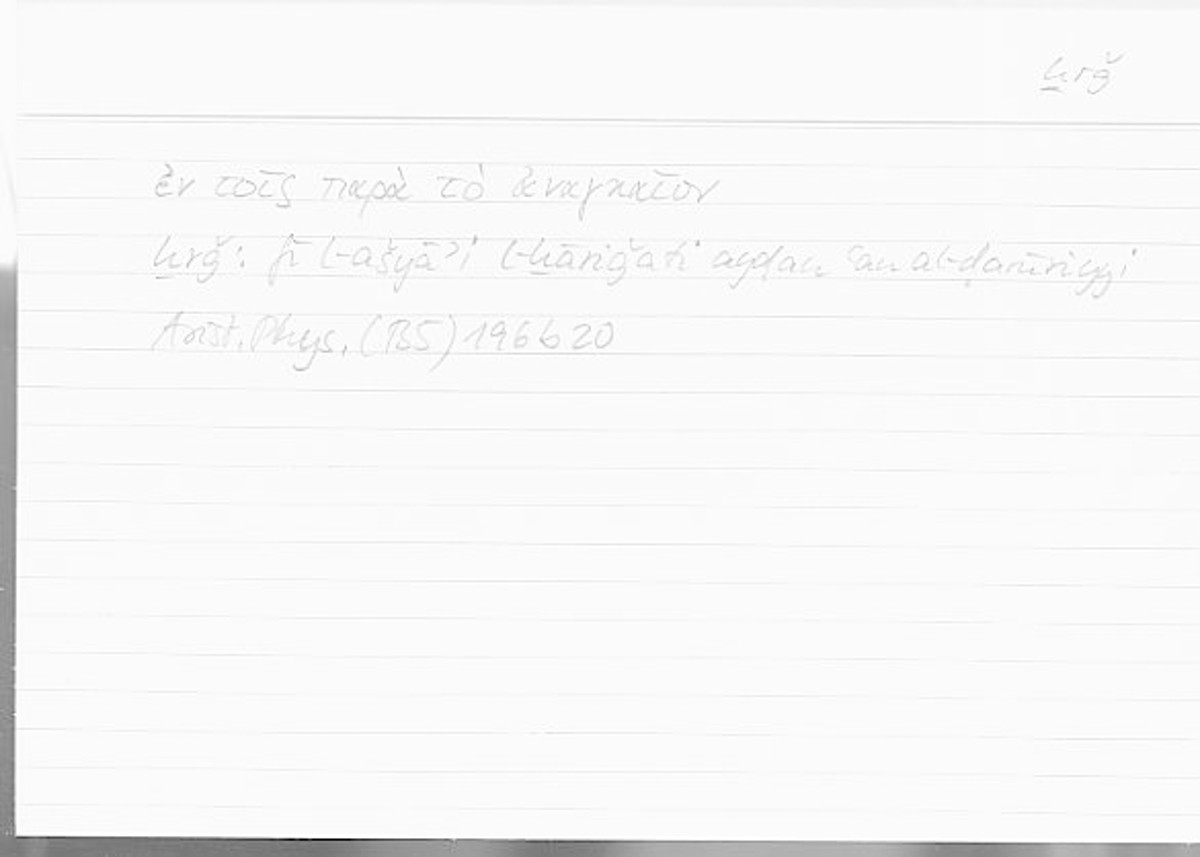 ḫrǧ
ἐν τοῖς παρὰ τὸ ἀναγκαῖον
ḫrǧ: fī l-ašyāʾi l-ḫāriǧati ayḍan ʿan al-ḍarūriyyi
Arist. Phys. (B5) 196b20